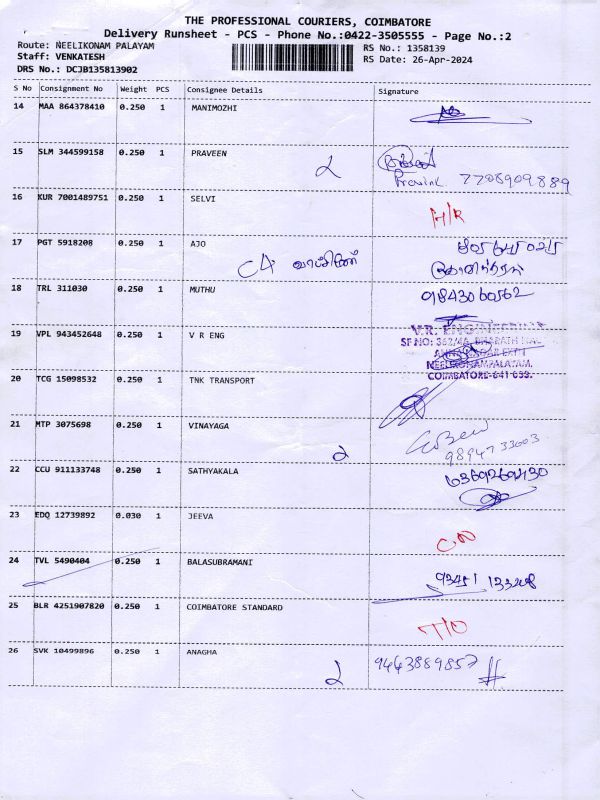 THE PROFESSIONAL COURIERS, COIMBATORE
Delivery Runsheet - PCS - Phone No.:0422-3505555 - Page No.:2
Route: NEELIKONAM PALAYAM
RS No.: 1358139
Staff: VENKATESH
RS Date: 26-Apr-2024
DRS No.: DCJB135813902
S No Consignment No Weight PCS Consignee Details Signature
14 MAA 864378410 0.250 1 MANIMOZHI
15 SLM 344599158 0.250 1 PRAVEEN 2
7708909889
16 KUR 7001489751 0.250 1 SELVI H/R
17 PGT 5918208 0.250 1 AJO
18 TRL 311030 0.250 1 MUTHU 9843060562
19 VPL 943452648 0.250 1 V R ENG
V.R. ENGINEERING
SF NO: 362/4A, BHARATH
NEELIKONAMPALAYAM,
COIMBATORE-641 033.
20 TCG 15098532 0.250 1 TNK TRANSPORT
21 MTP 3075698 0.250 1 VINAYAGA 2
9894733603
22 CCU 911133748 0.250 1 SATHYAKALA
23 EDQ 12739892 0.030 1 JEEVA
24 TVL 5490404 0.250 1 BALASUBRAMANI
25 BLR 4251907820 0.250 1 COIMBATORE STANDARD T/O
26 SVK 10499896 0.250 1 ANAGHA 2 9443889857